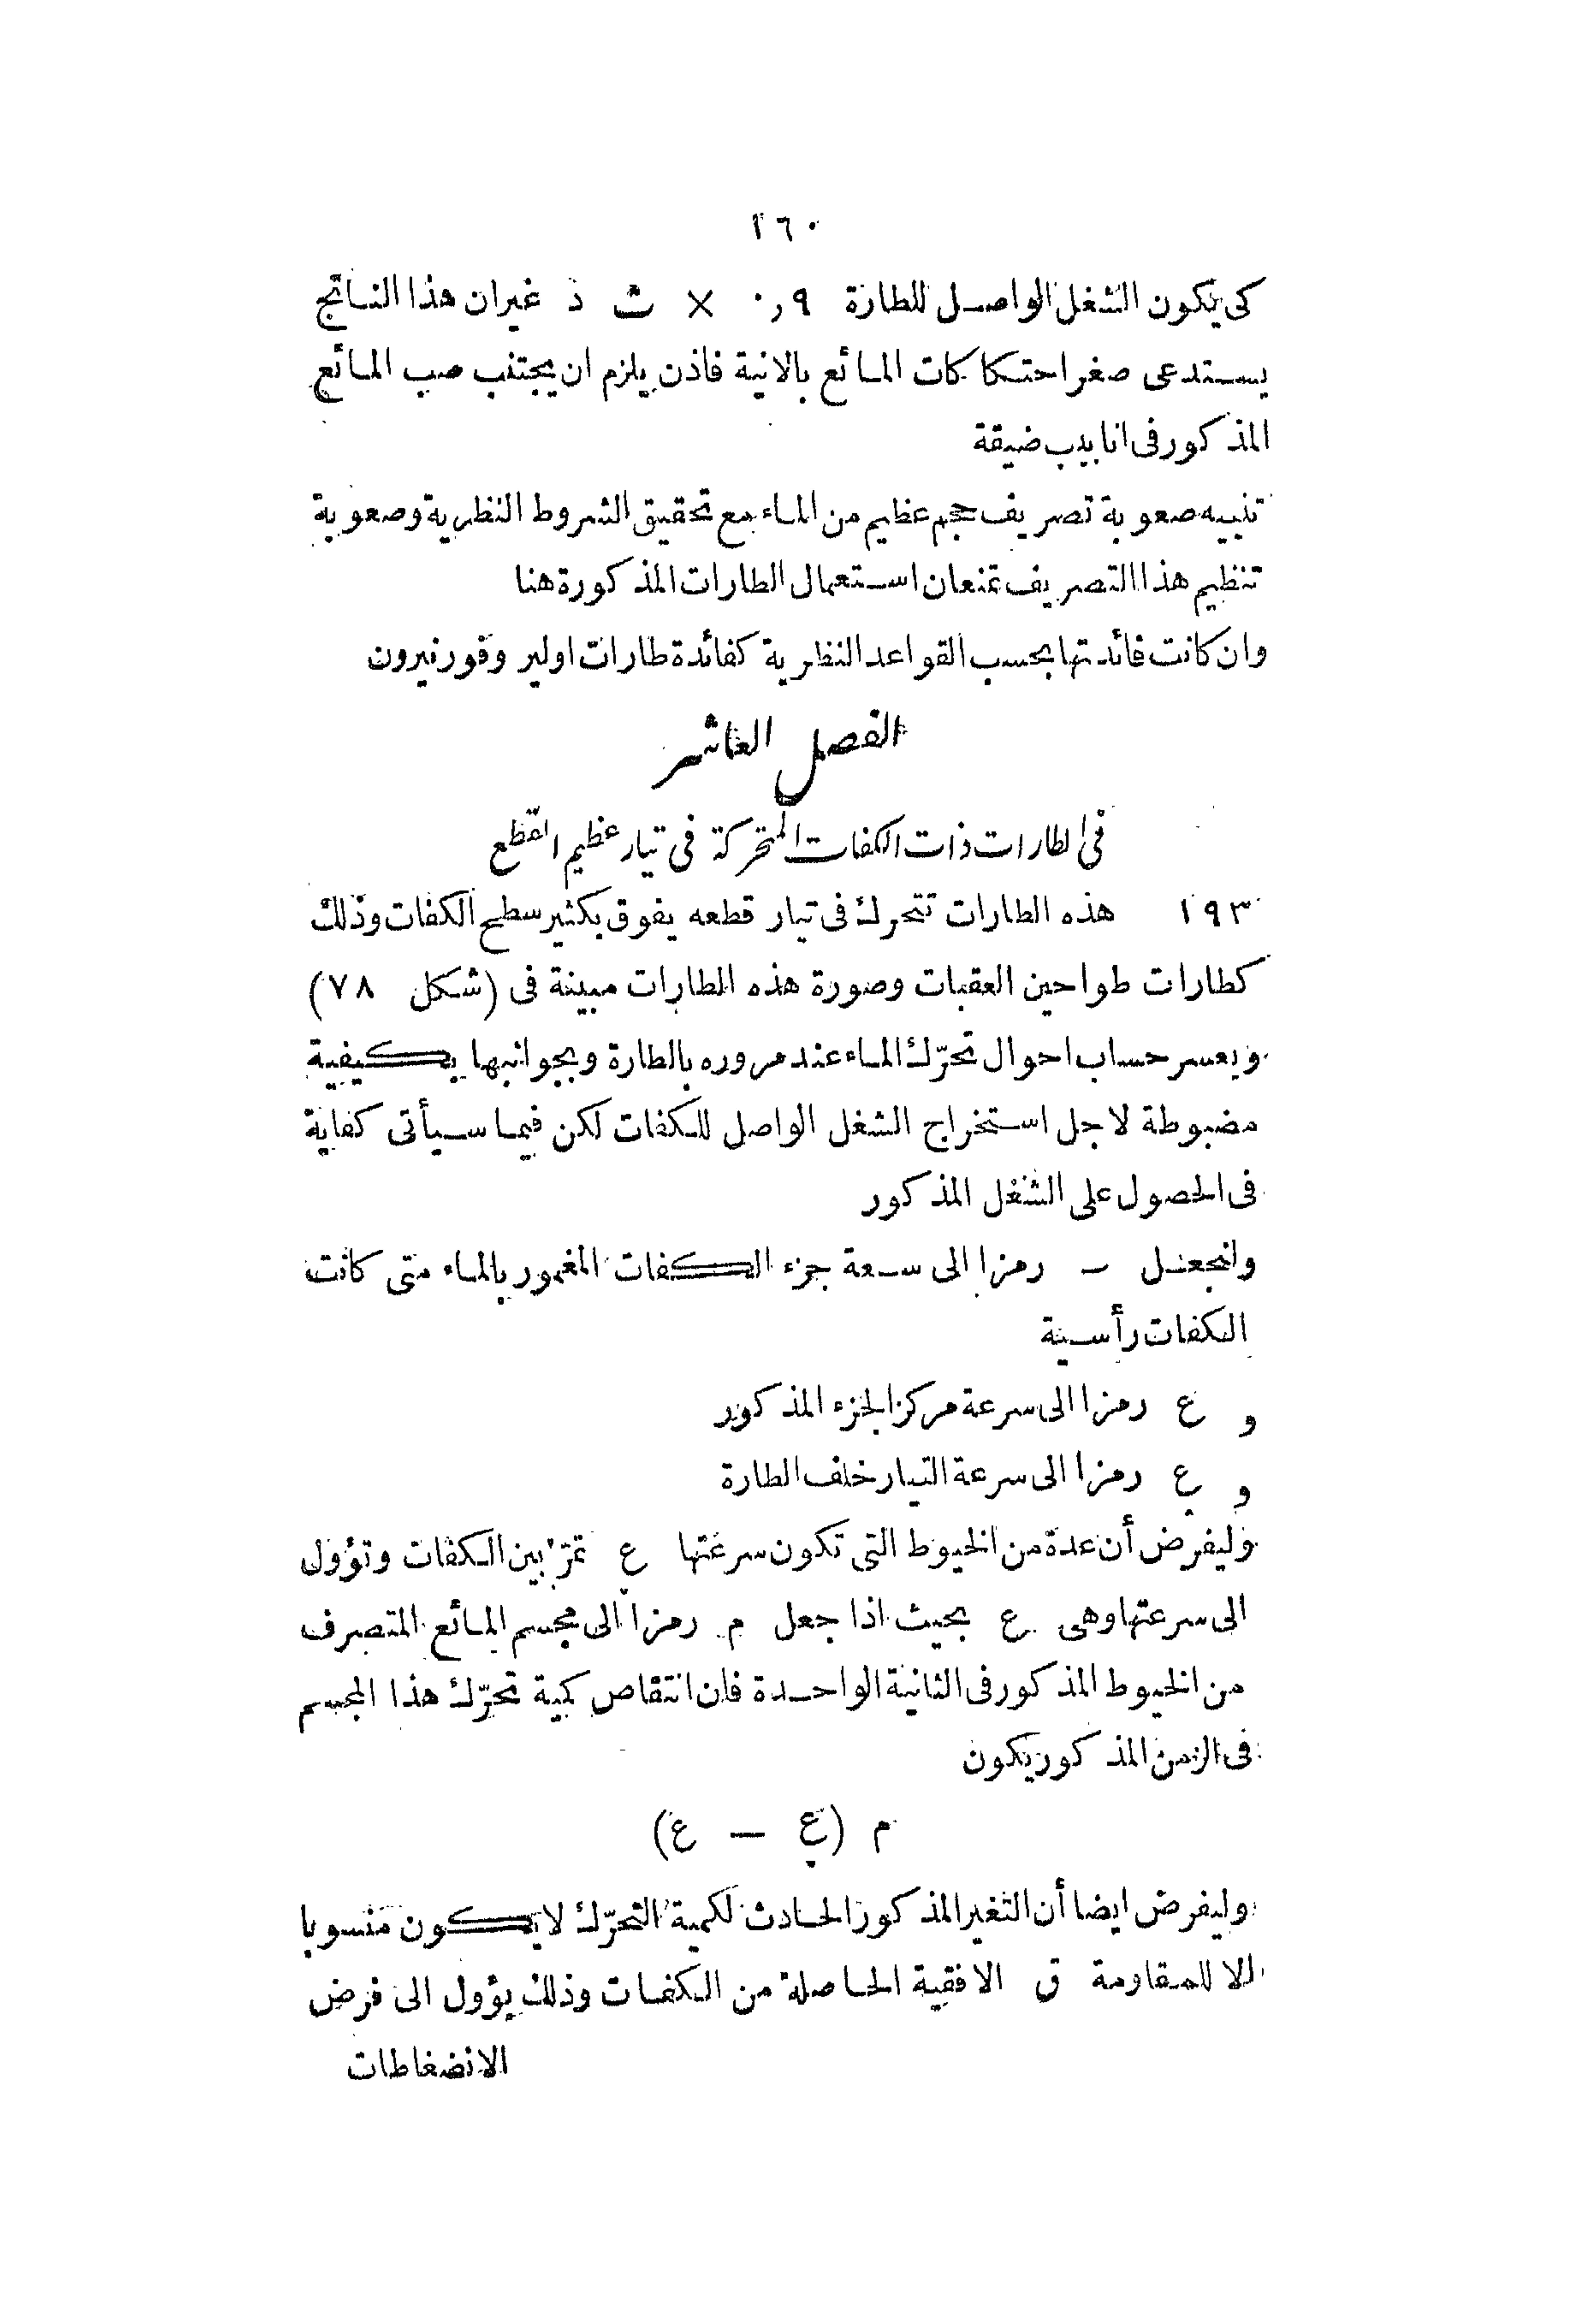 ١٦٠
كى يكون الشغل الواصل للطارة ٠,٩ × ث ذ غير ان هذا الناتج
يستدعى صغر احتكاكات المائع بالانية فاذن يلزم ان يجتنب صب المائع
المذكور فى انابيب ضيقة
تنبيه صعوبة تصريف حجم عظيم من الماء مع تحقيق الشروط النظرية وصعوبة
تنظيم هذا التصريف تمنعان استعمال الطارات المذكورة هنا
وان كانت فائدتها بحسب القواعد النظرية كفائدة طارات اولير وفورنيرون
الفصل العاشر
فى الطارات ذات الكفات المتحركة فى تيار عظيم القطع
١٩٣ هذه الطارات تتحرك فى تيار قطعه يفوق بكثير سطح الكفات وذلك
كطارات طواحين العقبات وصورة هذه الطارات مبينة فى (شكل ٧٨)
ويعسر حساب احوال تحرّك الماء عند مروره بالطارة وبجوانبها بكيفية
مضبوطة لاجل استخراج الشغل الواصل للكفات لكن فيما سيأتى كفاية
فى الحصول على الشغل المذكور
ولنجعل ـ رمزا الى سعة جزء الكفات المغمور بالماء متى كانت
الكفات رأسية
و ع رمزا الى سرعة مركز الجزء المذكور
و ع رمزا الى سرعة التيار خلف الطارة
وليفرض أن عدة من الخيوط التى تكون سرعتها ع تمرّ بين الكفات وتؤول
الى سرعتها وهى ع بحيث اذا جعل م رمزا الى مجسم المائع المتصرف
من الخيوط المذكور فى الثانية الواحدة فان انتقاص كمية تحرّك هذا المجسم
فى الزمن المذكور يكون
م (ع — ع)
وليفرض ايضا أن التغير المذكور الحادث لكمية التحرّك لا يكون منسوبا
الا للمقاومة ق الافقية الحاصلة من الكفات وذلك يؤول الى فرض
الانضغاطات